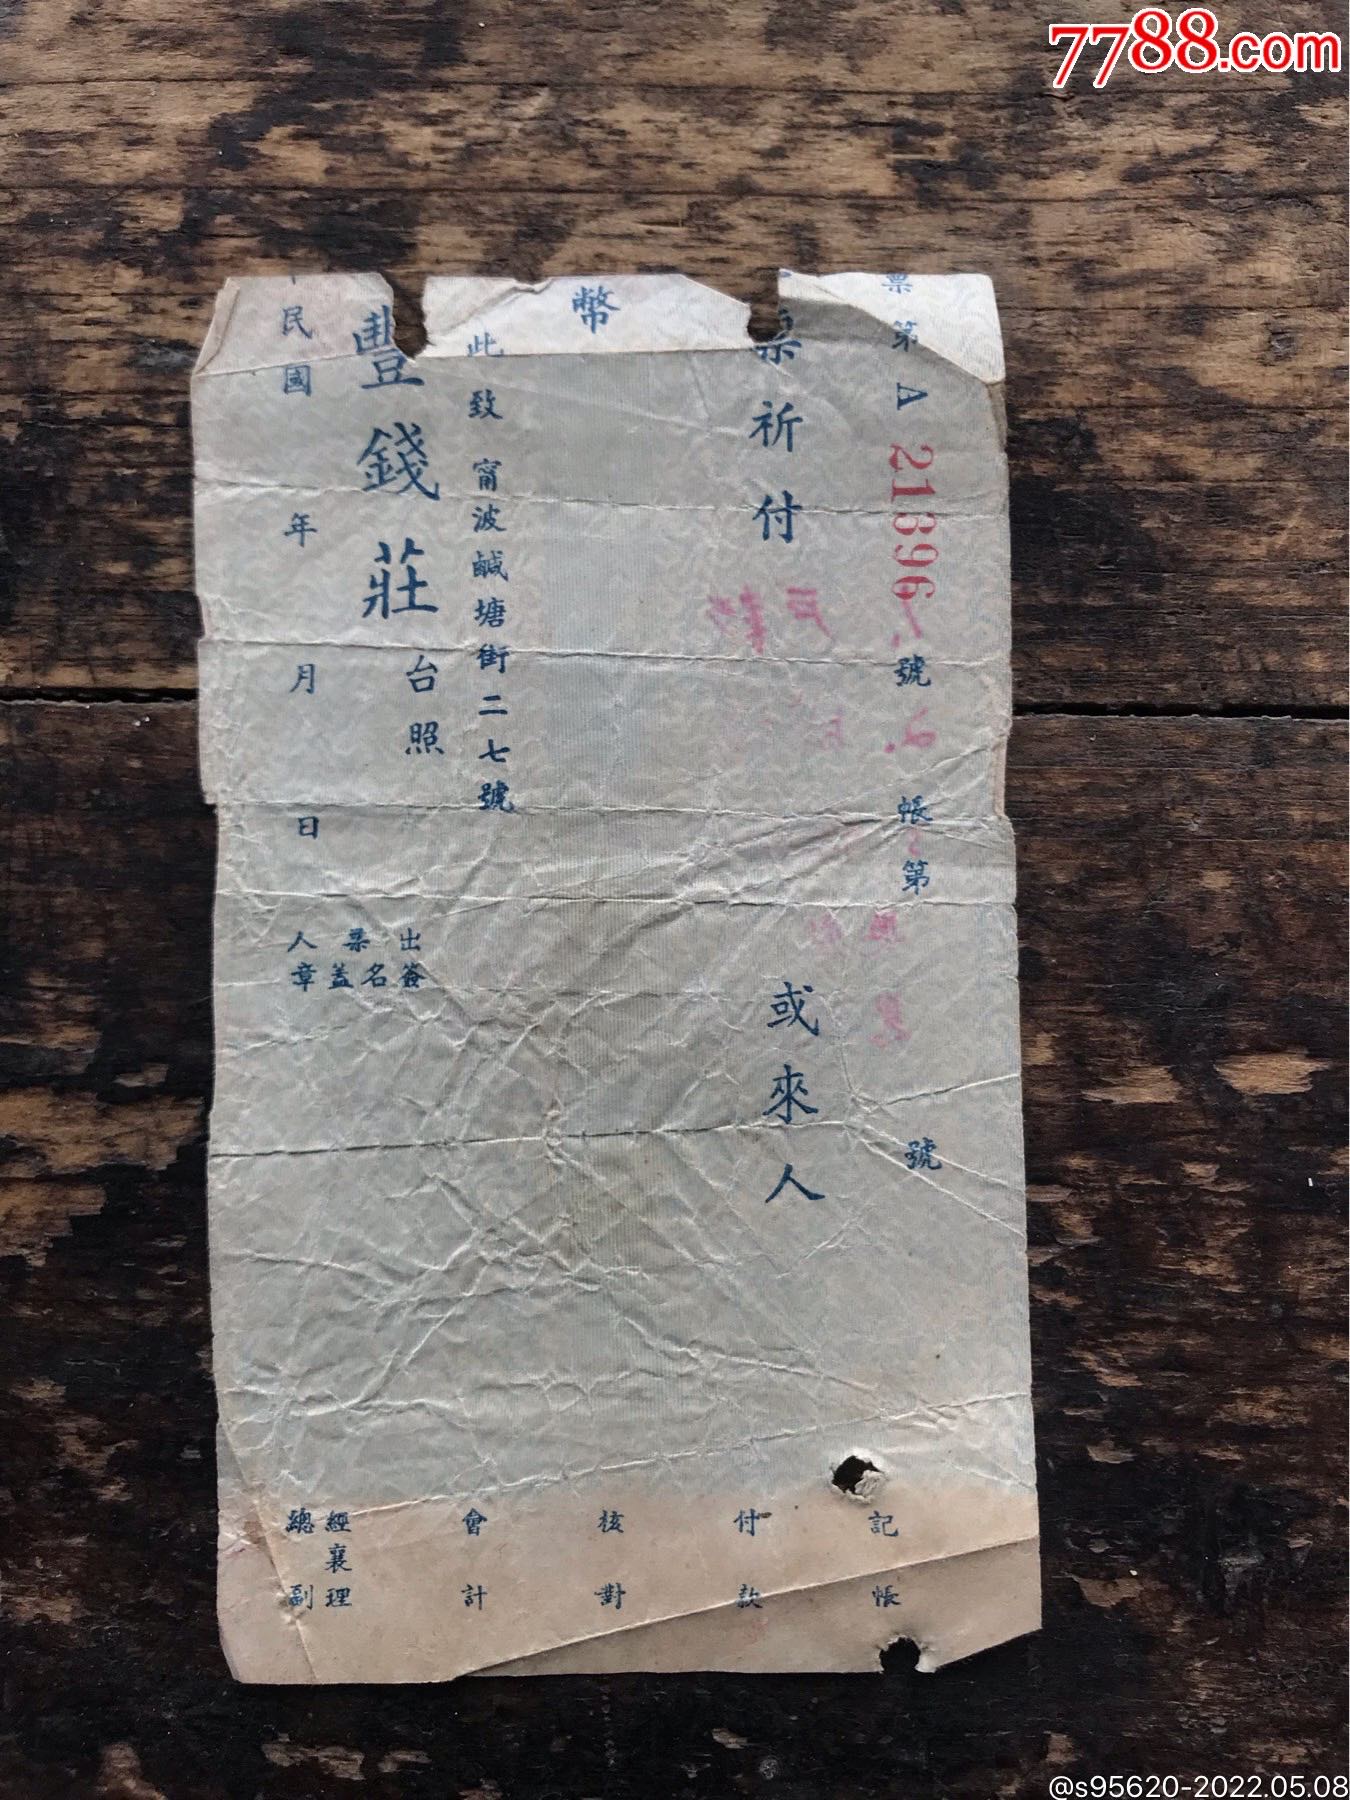 7788.com
票第A 21896號 帳第 號
票祈付 或來人
幣
此致 甯波鹹塘街二七號
豐錢莊 台照
民國 年 月 日
出票人
簽名蓋章
記帳
付款
核對
會計
經襄理
總副
@s95620-2022.05.08